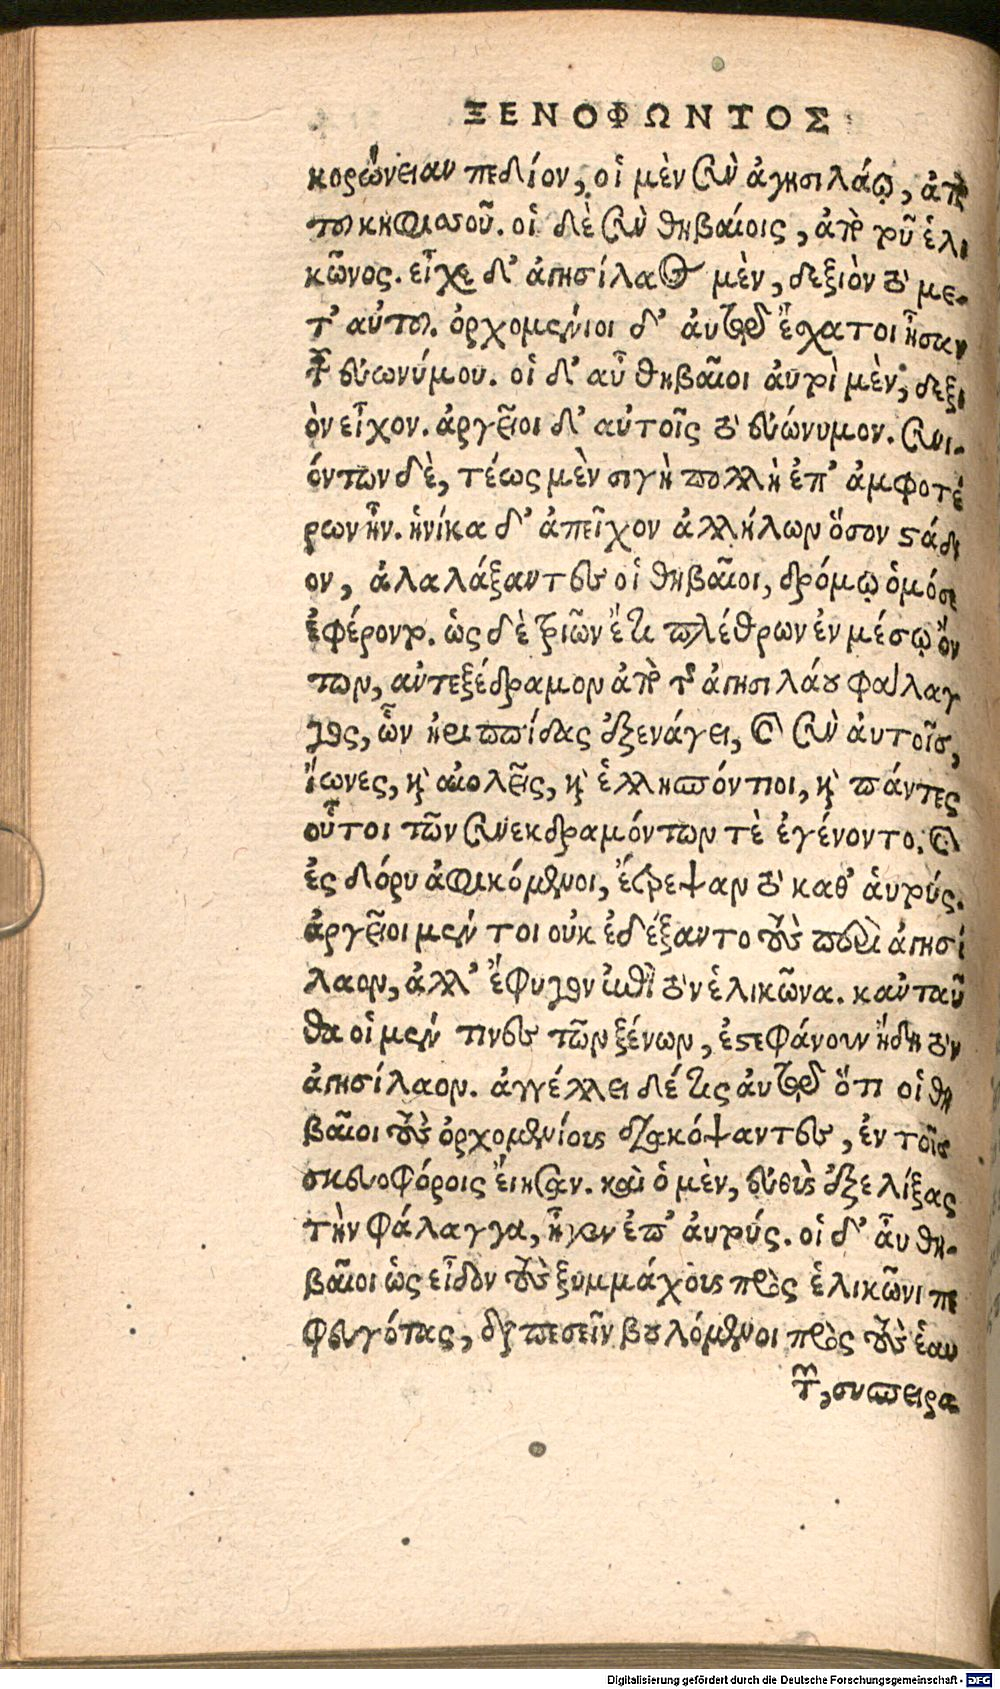 ΞΕΝΟΦΩΝΤΟΣ
κορώνειαν πεδίον, οἱ μὲν σὺν ἀγησιλάῳ, ἀπὸ
τοῦ κηφισσοῦ. οἱ δὲ σὺν θηβαίοις, ἀπὸ τοῦ ἑλι
κῶνος. εἶχε δ' ἀγησίλαος μὲν, δεξιὸν τὸ με-
τ' αὐτοῦ. ὀρχομένιοι δ' αὐτῷ ἔσχατοι ἦσαν
τοῦ εὐωνύμου. οἱ δ' αὖ θηβαῖοι αὐτοὶ μὲν, δεξι
ὸν εἶχον. ἀργεῖοι δ' αὐτοῖς τὸ εὐώνυμον. συνι-
όντων δὲ, τέως μὲν σιγὴ πολλὴ ἐπ' ἀμφοτέ
ρων ἦν. ἡνίκα δ' ἀπεῖχον ἀλλήλων ὅσον στάδι
ον, ἀλαλάξαντες οἱ θηβαῖοι, δρόμῳ ὁμόσε
ἐφέροντο. ὡς δὲ τριῶν ἔτι πλέθρων ἐν μέσῳ ὄν
των, αὐτεξέδραμον ἀπὸ τῆς ἀγησιλάου φαλαγ
γος, ὧν ἡριππίδας ἐξενάγει, καὶ σὺν αὐτοῖς,
ἴωνες, καὶ αἰολεῖς, καὶ ἑλλησπόντιοι, καὶ πάντες
οὗτοι τῶν συνεκδραμόντων τὲ ἐγένοντο. καὶ
ἐς δόρυ ἀφικόμενοι, ἔτρεψαν τὸ καθ' αὑτούς.
ἀργεῖοι μέν τοι οὐκ ἐδέξαντο τοὺς περὶ ἀγησί
λαον, ἀλλ' ἔφυγον ἐπὶ τὸν ἑλικῶνα. καὐταῦ
θα οἱ μέν τινες τῶν ξένων, ἐστεφάνουν ἤδη τὸν
ἀγησίλαον. ἀγγέλλει δέ τις αὐτῷ ὅτι οἱ θη
βαῖοι τοὺς ὀρχομενίους διακόψαντες, ἐν τοῖς
σκευοφόροις εἴησαν. καὶ ὁ μὲν, εὐθὺς ἐξελίξας
τὴν φάλαγγα, ἦγεν ἐπ' αὐτούς. οἱ δ' αὖ θη-
βαῖοι ὡς εἶδον τοὺς ξυμμάχους πρὸς ἑλικῶνι πε
φευγότας, διαπεσεῖν βουλόμενοι πρὸς τοὺς ἑαυ
τῶν, συσπειρα